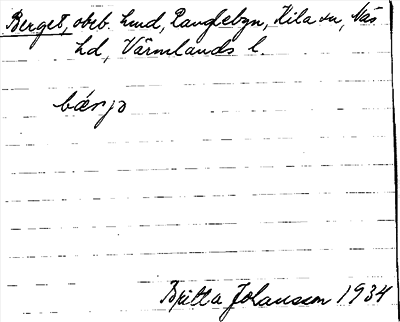 Berget, obeb. lmd, Ranglebyn, Kila sn, Näs
hd, Värmlands l.
bærjə
Britta Johansson 1934